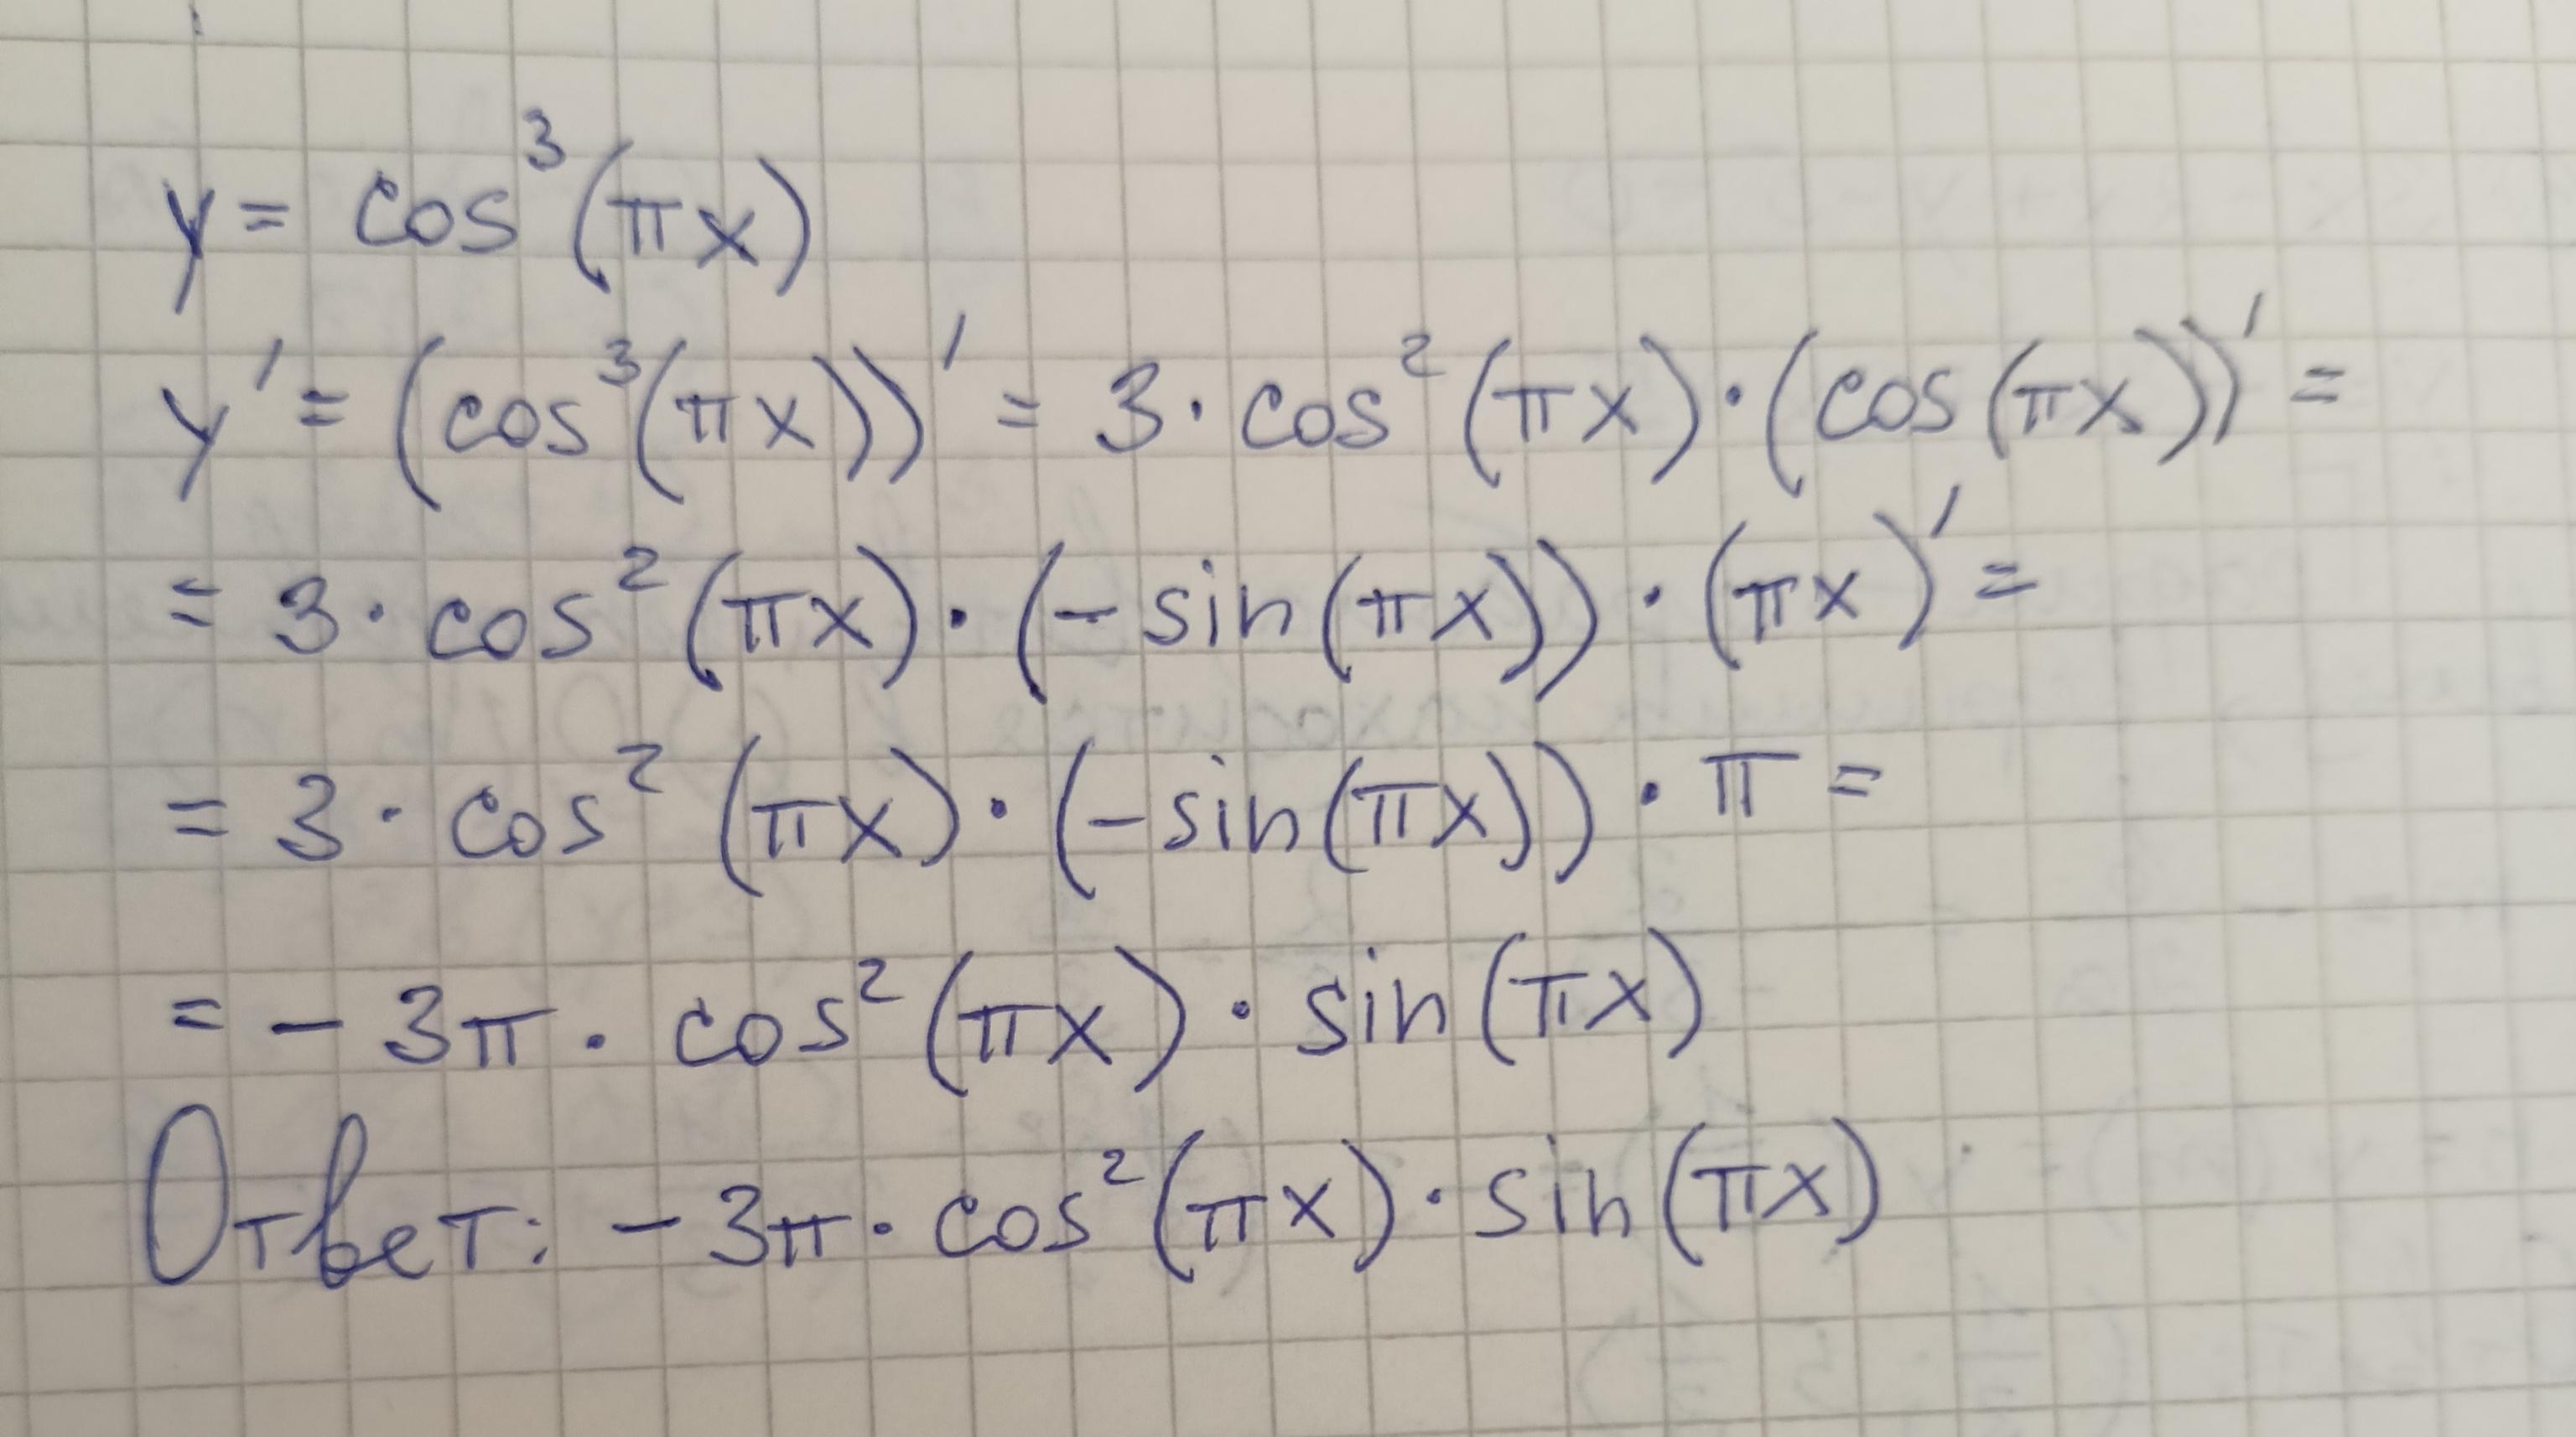 y = cos³(πx)
y' = (cos³(πx))' = 3 · cos²(πx) · (cos(πx))' =
= 3 · cos²(πx) · (-sin(πx)) · (πx)' =
= 3 · cos²(πx) · (-sin(πx)) · π =
= - 3π · cos²(πx) · sin(πx)
Ответ: - 3π · cos²(πx) · sin(πx)